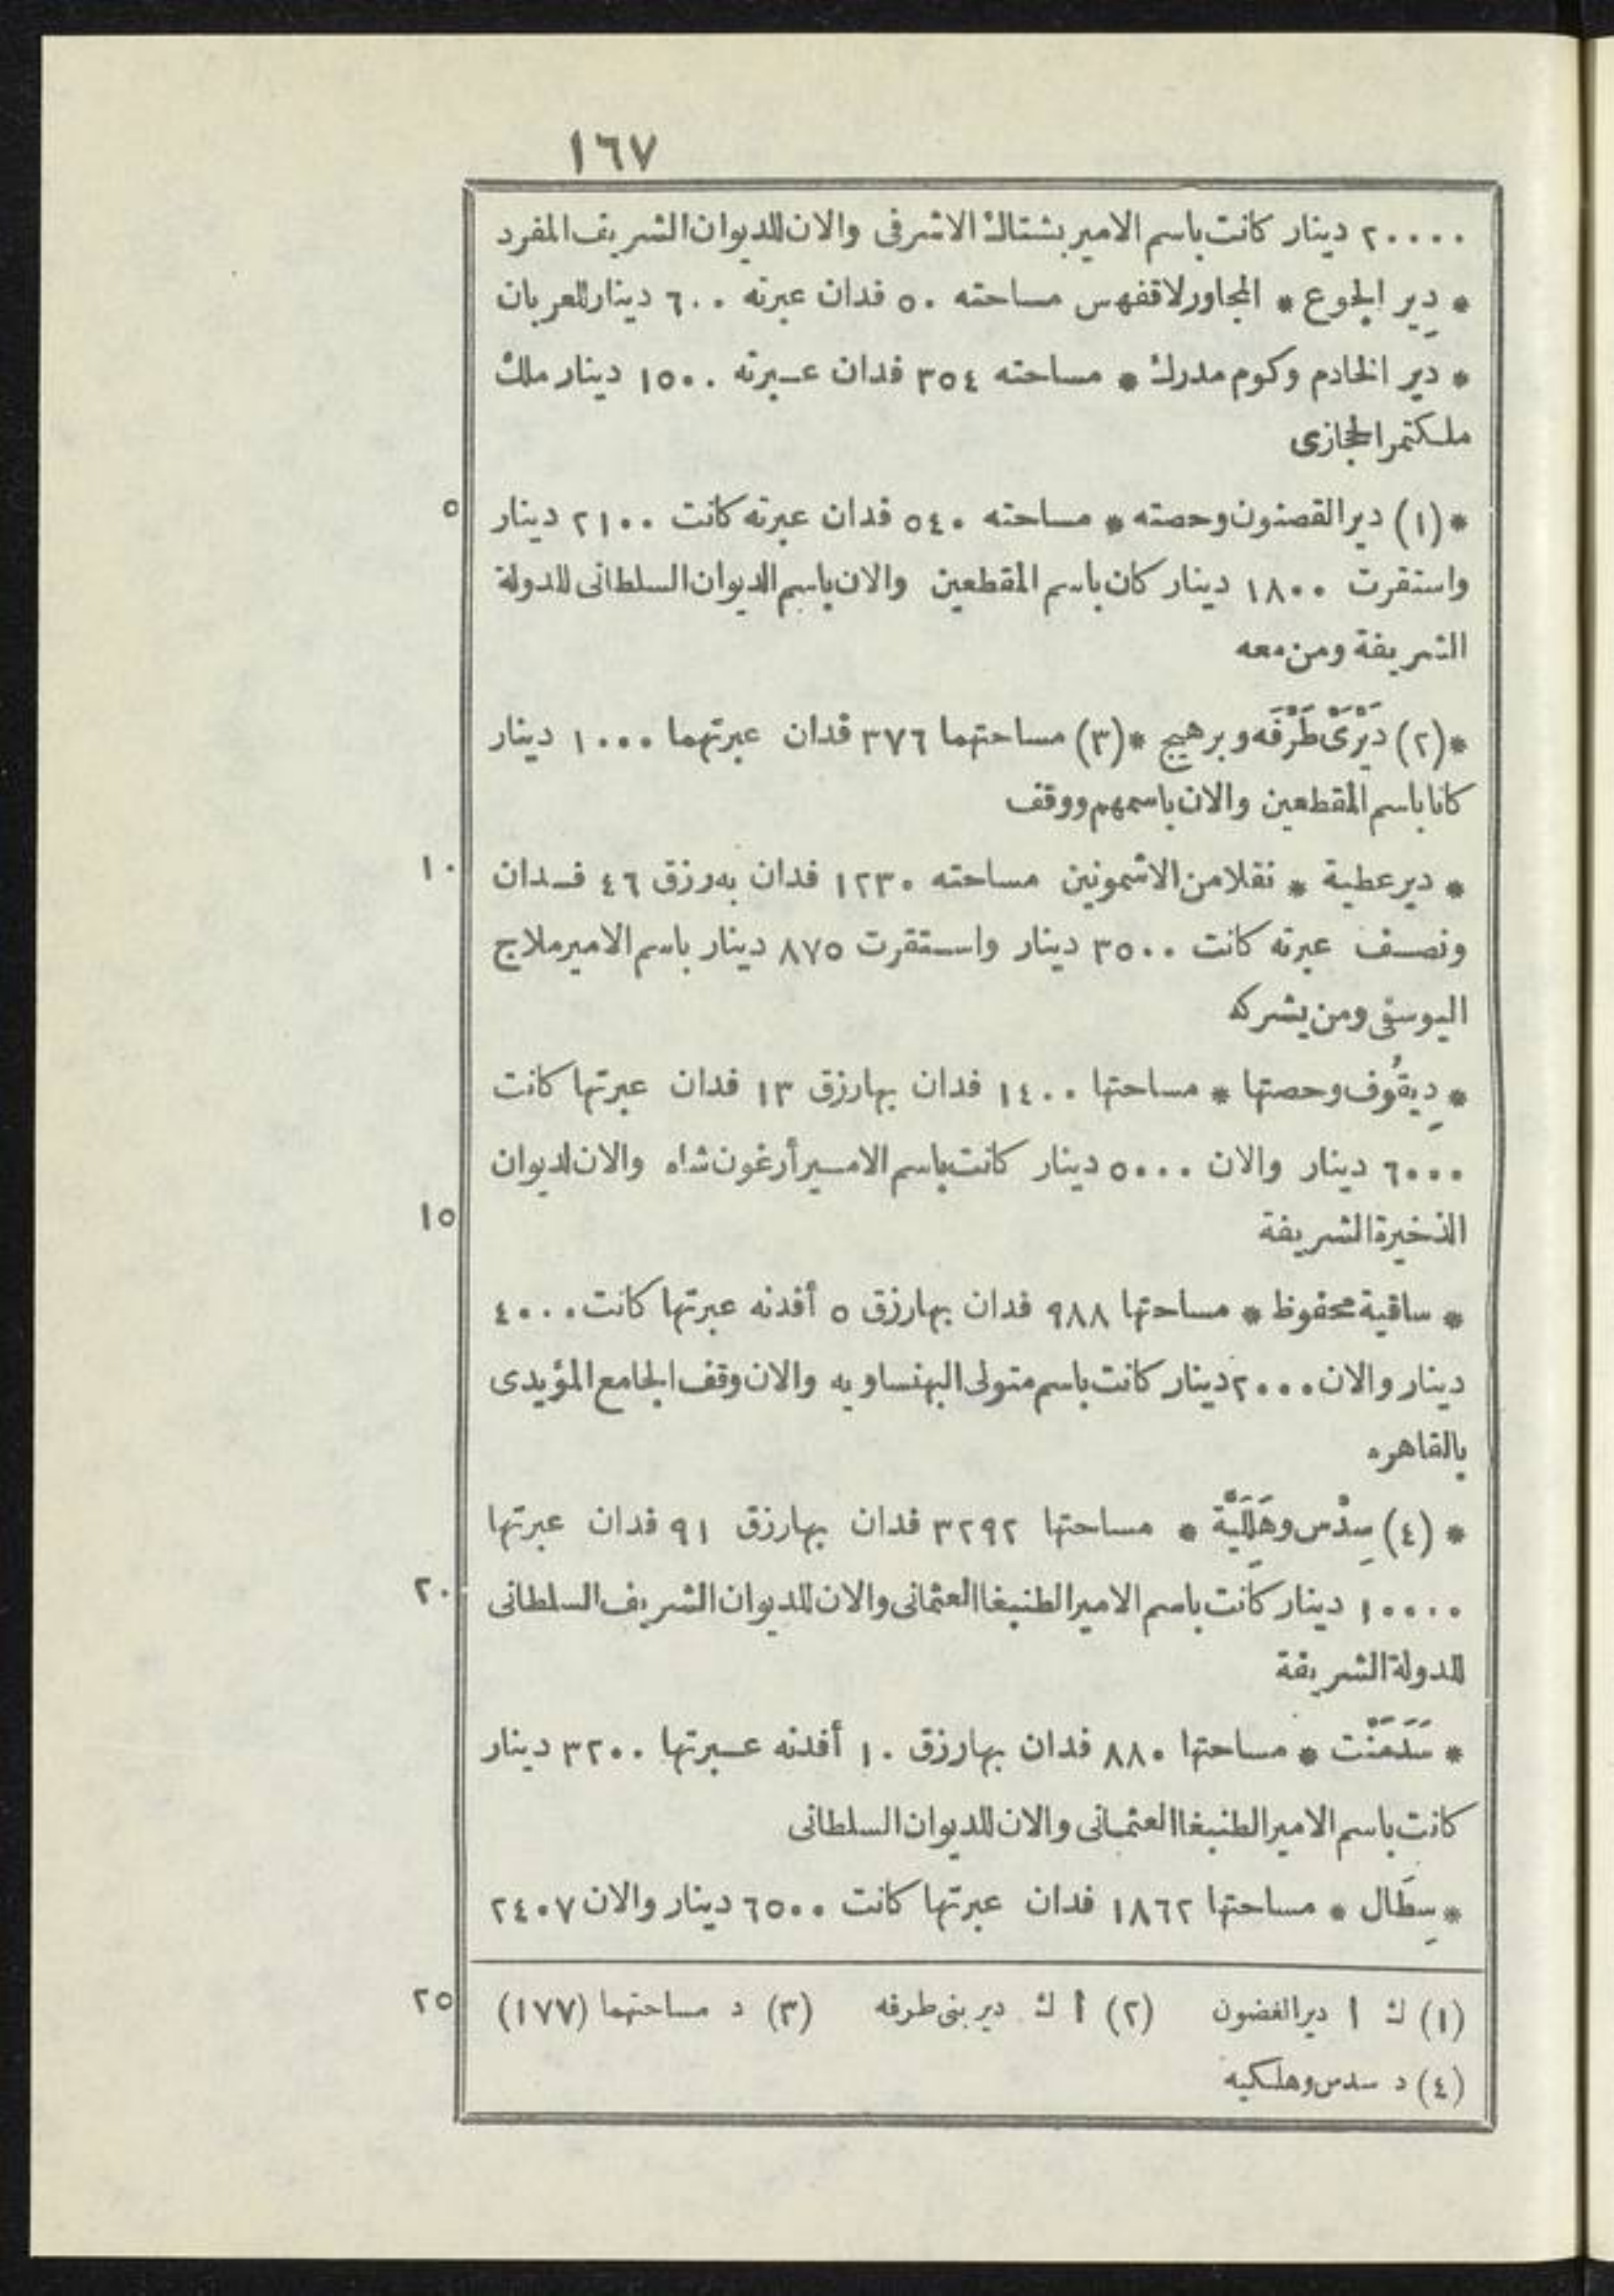 ١٦٧
٢٠٠٠٠ دينار كانت باسم الامير بشتاك الاشرفى والان للديوان الشريف المفرد
* دِير الجوع * المجاور لاقفهس مساحته ٥٠ فدان عبرته ٦٠٠ دينار للعربان
* دير الخادم وكوم مدرك * مساحته ٣٥٤ فدان عبرته ١٥٠٠ دينار ملك
ملكتمر الحجازى
* (١) دير القصنون وحصته * مساحته ٥٤٠ فدان عبرته كانت ٢١٠٠ دينار
٥
واستقرت ١٨٠٠ دينار كان باسم المقطعين والان باسم الديوان السلطانى للدولة
الشريفة ومن معه
* (٢) دَيْرَىْ طَرْفَه وبرهيج * (٣) مساحتهما ٣٧٦ فدان عبرتهما ١٠٠٠ دينار
كانا باسم المقطعين والان باسمهم ووقف
* دير عطية * نقلا من الاشمونين مساحته ١٢٣٠ فدان به رزق ٤٦ فدان
١٠
ونصف عبرته كانت ٣٥٠٠ دينار واستقرت ٨٧٥ دينار باسم الامير ملاج
اليوسفى ومن يشركه
* دِيقُوف وحصتها * مساحتها ١٤٠٠ فدان بها رزق ١٣ فدان عبرتها كانت
٦٠٠٠ دينار والان ٥٠٠٠ دينار كانت باسم الامير أرغون شاه والان لديوان
الذخيرة الشريفة
١٥
* ساقية محفوظ * مساحتها ٩٨٨ فدان بها رزق ٥ أفدنه عبرتها كانت ٤٠٠٠
دينار والان ٢٠٠٠ دينار كانت باسم متولى البهنساويه والان وقف الجامع المؤيدى
بالقاهره
* (٤) سِدْس وهَلِّيَّة * مساحتها ٣٢٩٢ فدان بها رزق ٩١ فدان عبرتها
١٠٠٠٠ دينار كانت باسم الامير الطنبغا العثمانى والان للديوان الشريف السلطانى
٢٠
للدولة الشريفة
* سَدَمَنْت * مساحتها ٨٨٠ فدان بها رزق ١٠ أفدنه عبرتها ٣٢٠٠ دينار
كانت باسم الامير الطنبغا العثمانى والان للديوان السلطانى
* سِطَال * مساحتها ١٨٦٢ فدان عبرتها كانت ٦٥٠٠ دينار والان ٢٤٠٧
(١) ك أ دير الغضون (٢) أ ك دير بنى طرفه (٣) د مساحتهما (١٧٧)
٢٥
(٤) د سدس وهلكيه